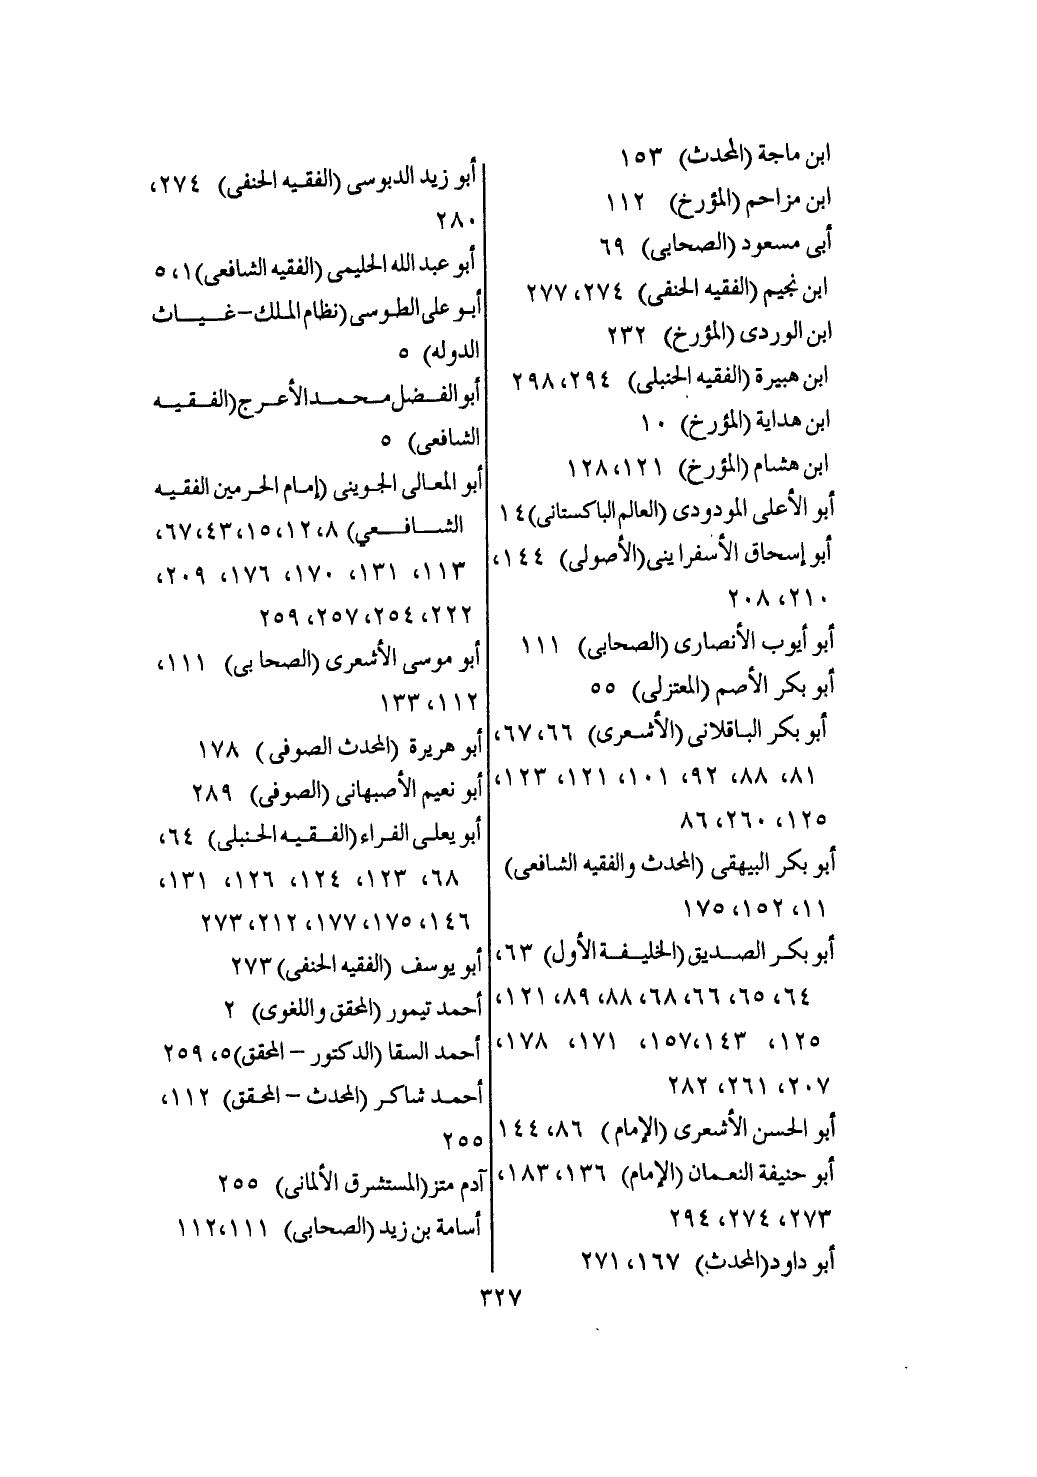 ابن ماجة (المحدث) ١٥٣
ابن مزاحم (المؤرخ) ١١٢
أبى مسعود (الصحابى) ٦٩
ابن نجيم (الفقيه الحنفى) ٢٧٤، ٢٧٧
ابن الوردى (المؤرخ) ٢٣٢
ابن هبيرة (الفقيه الحنبلى) ٢٩٤، ٢٩٨
ابن هداية (المؤرخ) ١٠
ابن هشام (المؤرخ) ١٢١، ١٢٨
أبو الأعلى المودودى (العالم الباكستانى) ١٤
أبو إسحاق الأسفراينى (الأصولى) ١٤٤،
٢١٠، ٢٠٨
أبو أيوب الأنصارى (الصحابى) ١١١
أبو بكر الأصم (المعتزلى) ٥٥
أبو بكر الباقلانى (الأشعرى) ٦٦، ٦٧،
٨١، ٨٨، ٩٢، ١٠١، ١٢١، ١٢٣،
١٢٥، ٢٦٠، ٨٦
أبو بكر البيهقى (المحدث والفقيه الشافعى)
١١، ١٥٢، ١٧٥
أبو بكر الصديق (الخليفة الأول) ٦٣،
٦٤، ٦٥، ٦٦، ٦٨، ٨٨، ٨٩، ١٢١،
١٢٥، ١٤٣، ١٥٧، ١٧١، ١٧٨،
٢٠٧، ٢٦١، ٢٨٢
أبو الحسن الأشعرى (الإمام) ٨٦، ١٤٤
أبو حنيفة النعمان (الإمام) ١٣٦، ١٨٣،
٢٧٣، ٢٧٤، ٢٩٤
أبو داود (المحدث) ١٦٧، ٢٧١
أبو زيد الدبوسى (الفقيه الحنفى) ٢٧٤،
٢٨٠
أبو عبد الله الحليمى (الفقيه الشافعى) ١، ٥
أبو على الطوسى (نظام الملك - غياث
الدوله) ٥
أبو الفضل محمد الأعرج (الفقيه
الشافعى) ٥
أبو المعالى الجوينى (إمام الحرمين الفقيه
الشافعي) ٨، ١٢، ١٥، ٤٣، ٦٧،
١١٣، ١٣١، ١٧٠، ١٧٦، ٢٠٩،
٢٢٢، ٢٥٤، ٢٥٧، ٢٥٩
أبو موسى الأشعرى (الصحابى) ١١١،
١١٢، ١٣٣
أبو هريرة (المحدث الصوفى) ١٧٨
أبو نعيم الأصبهانى (الصوفى) ٢٨٩
أبو يعلى الفراء (الفقيه الحنبلى) ٦٤،
٦٨، ١٢٣، ١٢٤، ١٢٦، ١٣١،
١٤٦، ١٧٥، ١٧٧، ٢١٢، ٢٧٣
أبو يوسف (الفقيه الحنفى) ٢٧٣
أحمد تيمور (المحقق واللغوى) ٢
أحمد السقا (الدكتور - المحقق) ٥، ٢٥٩
أحمد شاكر (المحدث - المحقق) ١١٢،
٢٥٥
آدم متز (المستشرق الألمانى) ٢٥٥
أسامة بن زيد (الصحابى) ١١١، ١١٢
٣٢٧